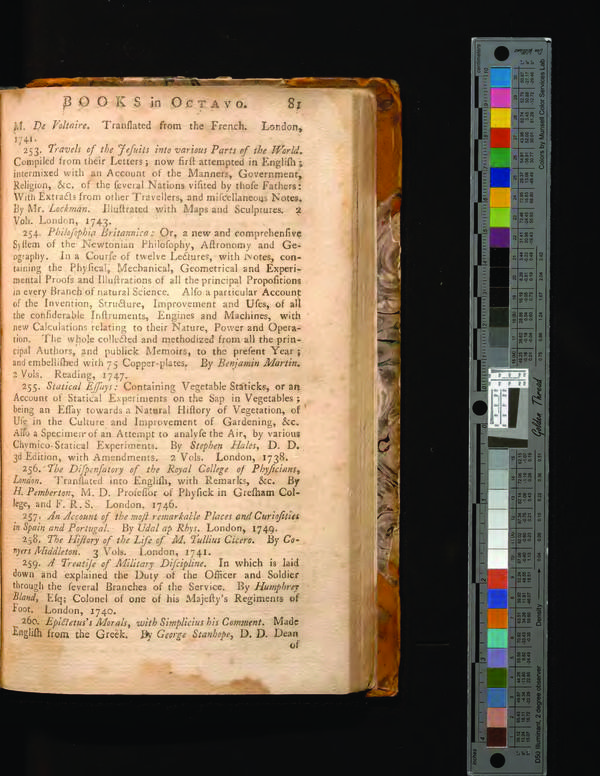 BOOKS in OCTAVO. 81
M. De Voltaire. Tranſlated from the French. London,
1741.
253. Travels of the Jeſuits into various Parts of the World.
Compiled from their Letters; now firſt attempted in Engliſh;
intermixed with an Account of the Manners, Government,
Religion, &c. of the ſeveral Nations viſited by thoſe Fathers:
With Extracts from other Travellers, and miſcellaneous Notes.
By Mr. Lockman. Illuſtrated with Maps and Sculptures. 2
Vols. London, 1743.
254. Philoſophia Britannica: Or, a new and comprehenſive
Syſtem of the Newtonian Philoſophy, Aſtronomy and Ge-
ography. In a Courſe of twelve Lectures, with Notes, con-
taining the Phyſical, Mechanical, Geometrical and Experi-
mental Proofs and Illuſtrations of all the principal Propoſitions
in every Branch of natural Science. Alſo a particular Account
of the Invention, Structure, Improvement and Uſes, of all
the conſiderable Inſtruments, Engines and Machines, with
new Calculations relating to their Nature, Power and Opera-
tion. The whole collected and methodized from all the prin-
cipal Authors, and publick Memoirs, to the preſent Year;
and embelliſhed with 75 Copper-plates. By Benjamin Martin.
2 Vols. Reading, 1747.
255. Statical Eſſays: Containing Vegetable Staticks, or an
Account of Statical Experiments on the Sap in Vegetables;
being an Eſſay towards a Natural Hiſtory of Vegetation, of
Uſe in the Culture and Improvement of Gardening, &c.
Alſo a Specimen of an Attempt to analyſe the Air, by various
Chymico-Statical Experiments. By Stephen Hales, D. D.
3d Edition, with Amendments. 2 Vols. London, 1738.
256. The Diſpenſatory of the Royal College of Phyſicians,
London. Tranſlated into Engliſh, with Remarks, &c. By
H. Pemberton, M. D. Profeſſor of Phyſick in Greſham Col-
lege, and F. R. S. London, 1746.
257. An Account of the moſt remarkable Places and Curioſities
in Spain and Portugal. By Udal ap Rhys. London, 1749.
258. The Hiſtory of the Life of M. Tullius Cicero. By Co-
nyers Middleton. 3 Vols. London, 1741.
259. A Treatiſe of Military Diſcipline. In which is laid
down and explained the Duty of the Officer and Soldier
through the ſeveral Branches of the Service. By Humphrey
Bland, Eſq; Colonel of one of his Majeſty's Regiments of
Foot. London, 1740.
260. Epictetus's Morals, with Simplicius his Comment. Made
Engliſh from the Greek. By George Stanhope, D. D. Dean
of
Colors by Munsell Color Services Lab
Golden Thread
Density
D50 Illuminant, 2 degree observer